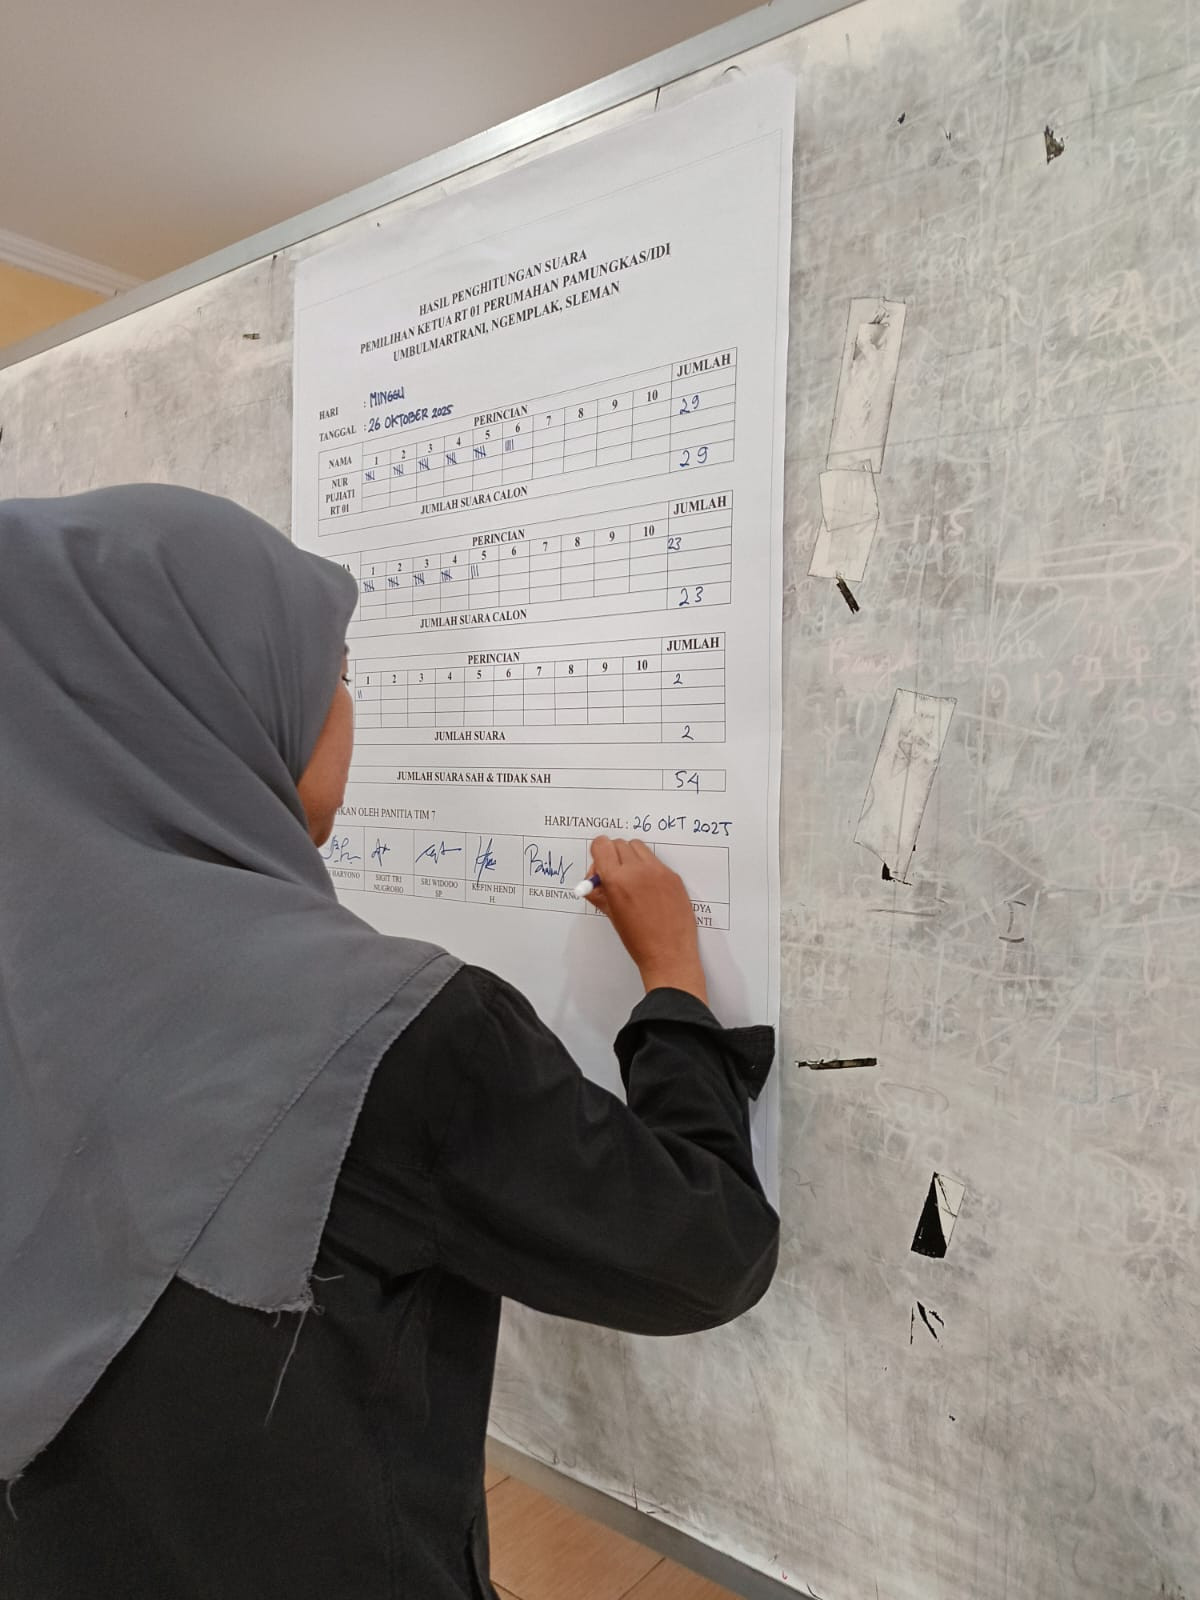 HASIL PENGHITUNGAN SUARA
PEMILIHAN KETUA RT 01 PERUMAHAN PAMUNGKAS/IDI
UMBULMARTRANI, NGEMPLAK, SLEMAN
HARI : MINGGU
TANGGAL : 26 OKTOBER 2025
NAMA PERINCIAN JUMLAH
1 2 3 4 5 6 7 8 9 10
NUR PUJIATI RT 01 29
JUMLAH SUARA CALON 29
PERINCIAN JUMLAH
1 2 3 4 5 6 7 8 9 10
23
JUMLAH SUARA CALON 23
PERINCIAN JUMLAH
1 2 3 4 5 6 7 8 9 10
2
JUMLAH SUARA 2
JUMLAH SUARA SAH & TIDAK SAH 54
OLEH PANITIA TIM 7 HARI/TANGGAL : 26 OKT 2025
HARYONO
SIGIT TRI NUGROHO
SRI WIDODO SP
KEFIN HENDI H
EKA BINTANG